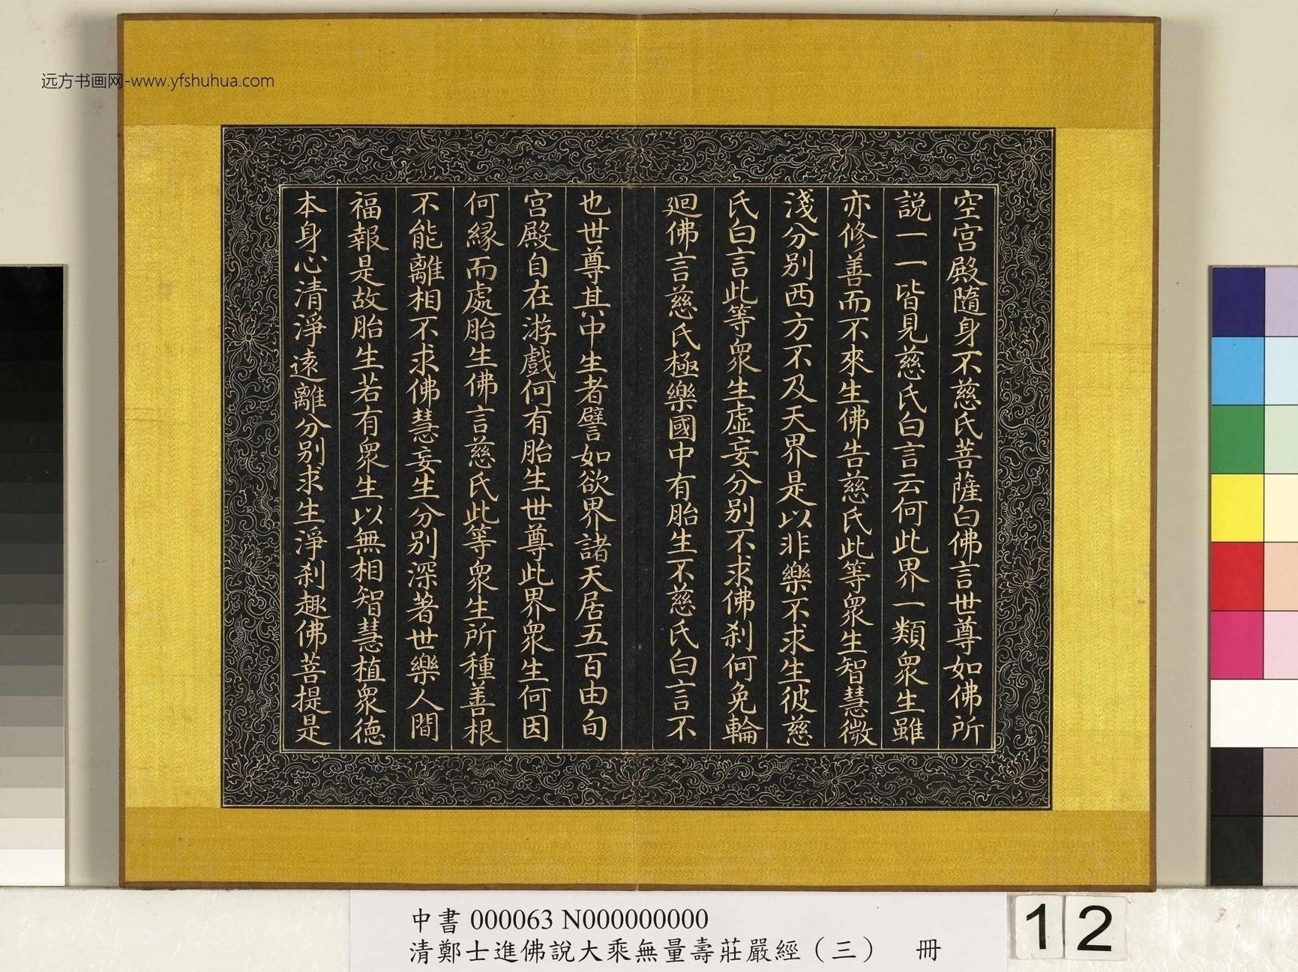 远方书画网-www.yfshuhua.com
空宫殿隨身不慈氏菩薩白佛言世尊如佛所
説一一皆見慈氏白言云何此界一類衆生雖
亦修善而不來生佛告慈氏此等衆生智慧微
淺分別西方不及天界是以非樂不求生彼慈
氏白言此等衆生虚妄分別不求佛刹何免輪
廻佛言慈氏極樂國中有胎生不慈氏白言不
也世尊其中生者譬如欲界諸天居五百由旬
宫殿自在游戲何有胎生世尊此界衆生何因
何縁而處胎生佛言慈氏此等衆生所種善根
不能離相不求佛慧妄生分別深著世樂人間
福報是故胎生若有衆生以無相智慧植衆徳
本身心清淨遠離分別求生淨刹趣佛菩提是
中書 000063 N000000000
清鄭士進佛說大乘無量壽莊嚴經（三） 冊
12